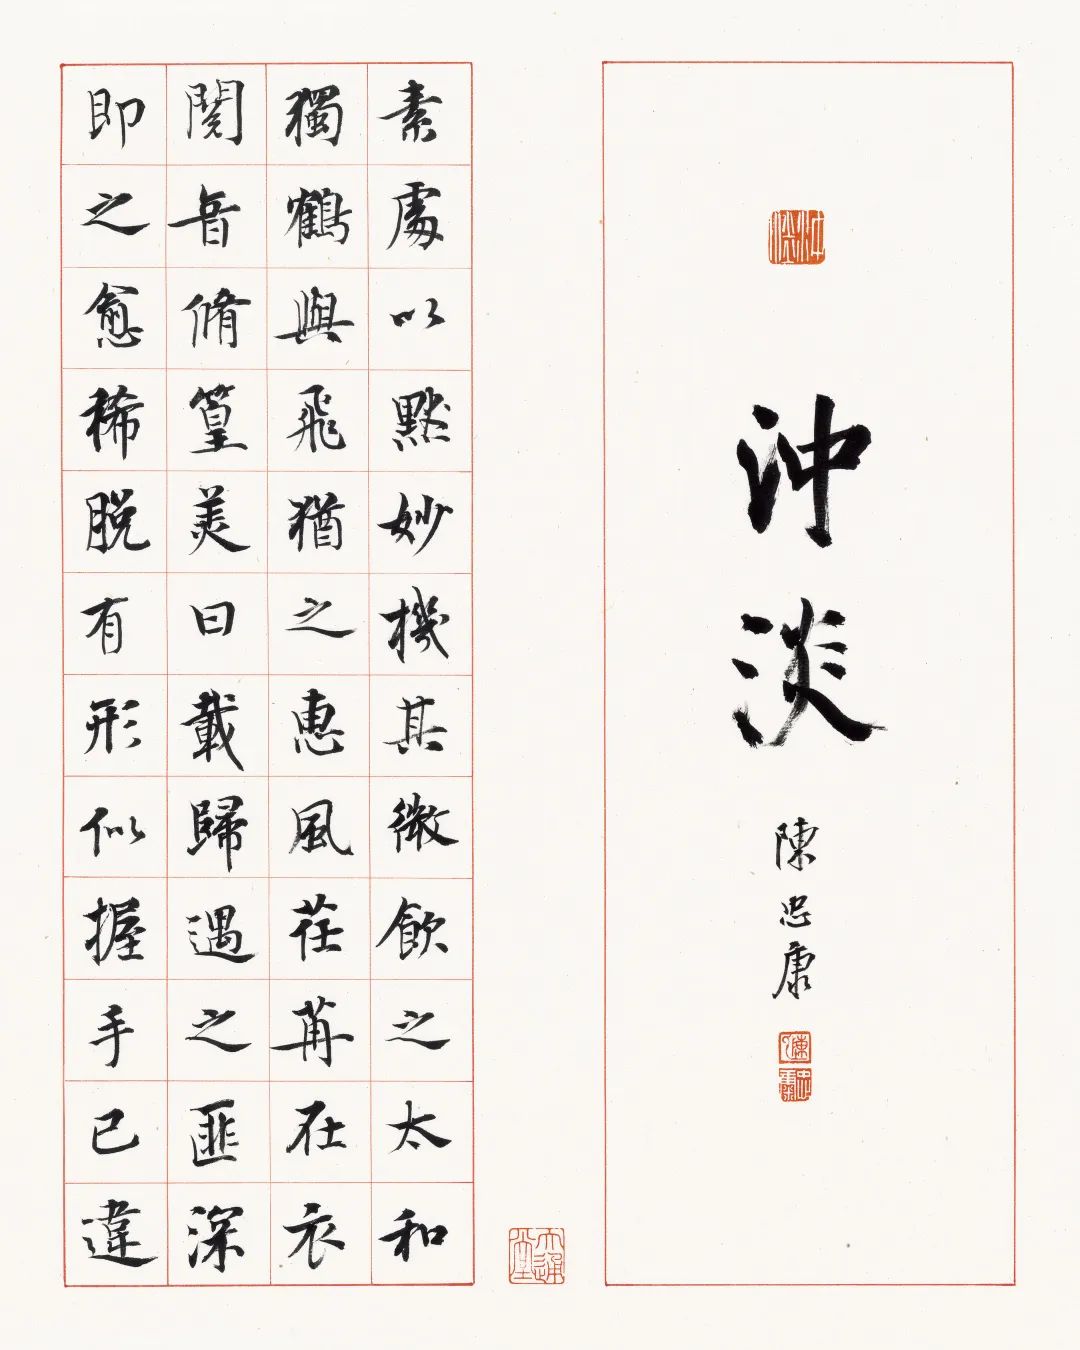 沖淡
沖淡
陳忠康
素處以默妙機其微飲之太和
獨鶴與飛猶之惠風荏苒在衣
閱音脩篁美曰載歸遇之匪深
即之愈稀脫有形似握手已違